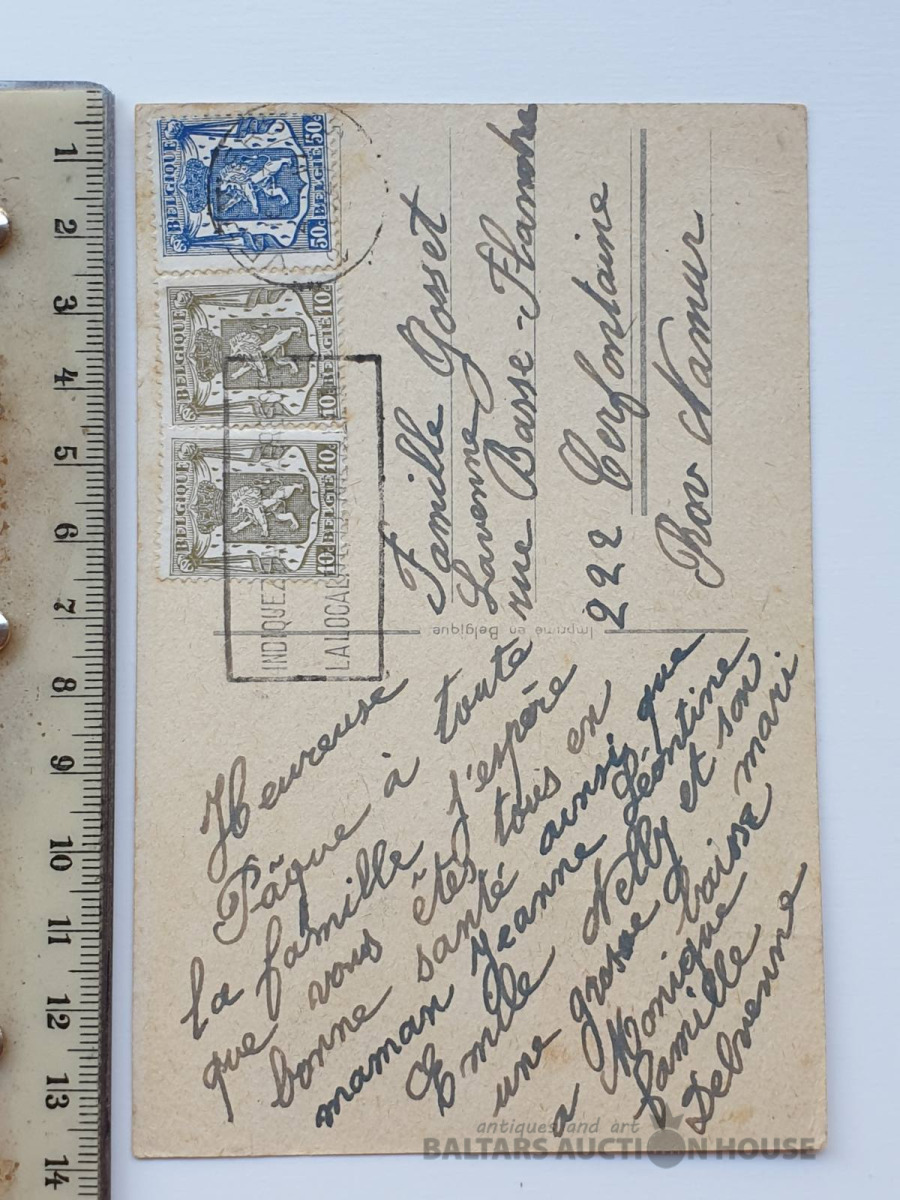 Heureuse
Pâque à toute
la famille j'espère
que vous êtes tous en
bonne santé ainsi que
maman Jeanne Léontine
Emile Nelly et son mari
une grosse baisse
a Monique
famille
Delvenne
Imprimé en Belgique
BELGIQUE
50c BELGIË 50c
BELGIQUE
10c BELGIË 10c
BELGIQUE
10c BELGIË 10c
INDIQUEZ
LA LOCAL
Famille Gosset
Lavenne
rue Basse-Flandre
222 Cerfontaine
Prov Namur
1
2
3
4
5
6
7
8
9
10
11
12
13
14
antiques and art
BALTARS AUCTION HOUSE